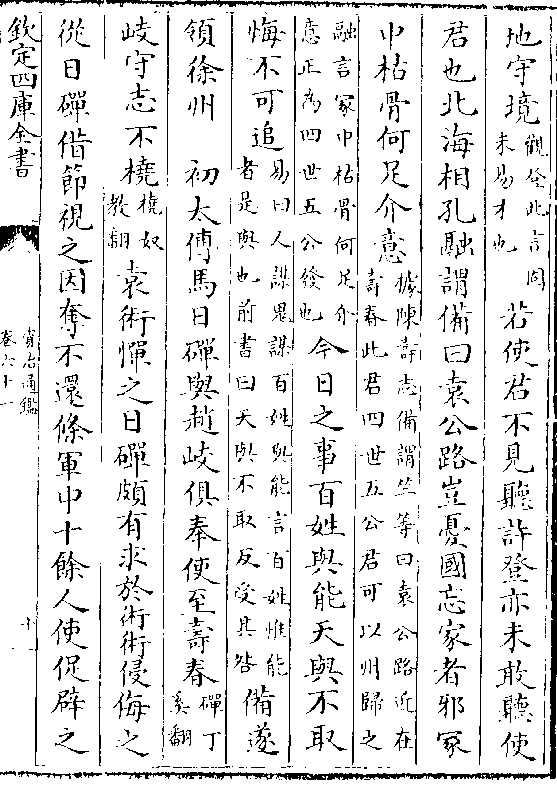 地守境觀登此言固未易才也若使君不見聽許登亦未敢聽使
君也北海相孔融謂備曰袁公路豈憂國忘家者邪冢
中枯骨何足介意據陳壽志備謂竺等曰袁公路近在壽春此君四世五公君可以州歸之
融言冢中枯骨何足介意正為四世五公發也今日之事百姓與能天與不取
悔不可追易曰人謀鬼謀百姓與能言百姓惟能者是與也前書曰天與不取反受其咎備遂
領徐州　初太傅馬日磾與趙岐俱奉使至壽春磾丁奚翻
岐守志不橈橈奴教翻袁術憚之日磾頗有求於術術侵侮之
從日磾借節視之因奪不還條軍中十餘人使促辟之
欽定四庫全書
資治通鑑
卷六十一
十